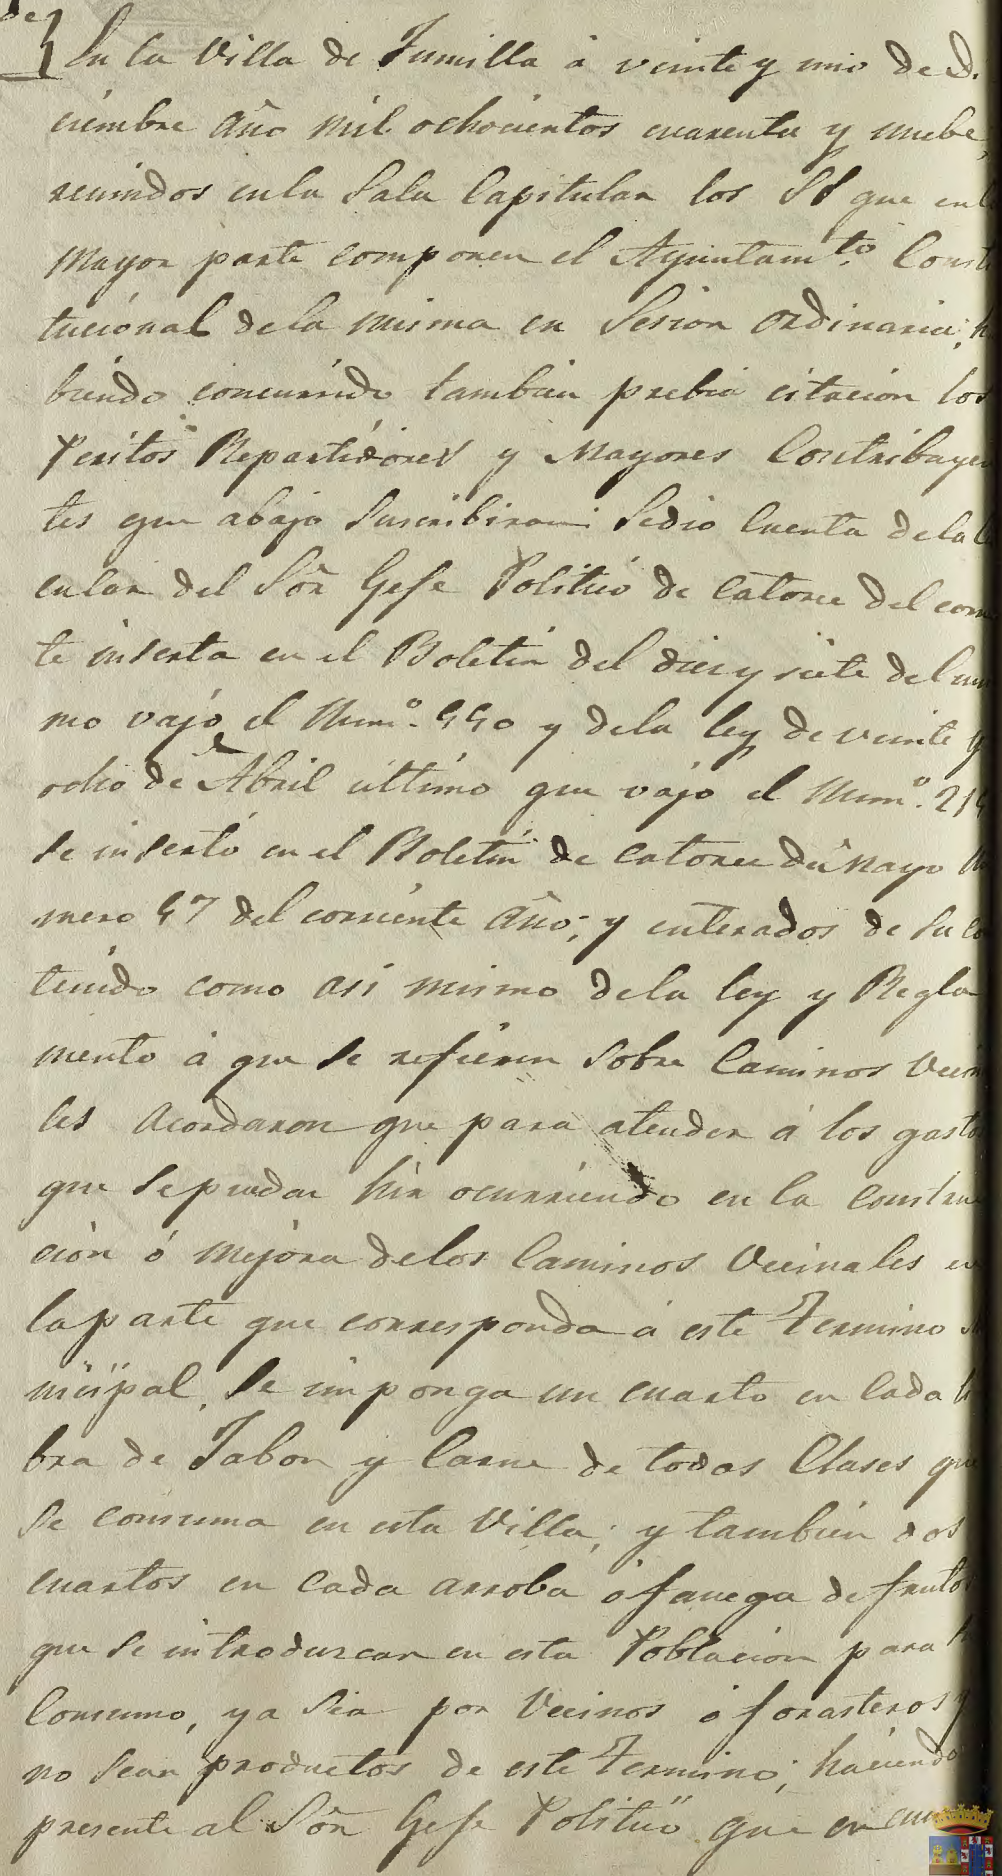 de
En la Villa de Jumilla á veinte y uno de Di
ciembre año mil ochocientos cuarenta y nuebe,
reunidos en la Sala Capitular los SS que en l
Mayor parte componen el Ayuntamto. Consti
tucional de la misma en Sesion ordinaria, h
biendo concurrido tambien prebia citacion los
Peritos Repartidores y Mayores Contribuyen
tes que abajo suscribiran: Sedio cuenta de la C
cular del Sõr Gefe Politico de catorce del corn
te inserta en el Boletin del diez y siete del mis
mo vajo el Numº. 440 y de la ley de veinte y
ocho de Abril ultimo que vajo el Numº. 214
se insertó en el Boletin de catorce de Mayo Nu
mero 47 del corriente año; y enterados de su co
tenido como asi mismo de la ley y Regla
mento á que se refieren sobre Caminos Vecin
les Acordaron que para atender á los gastos
que se puedan hir ocurriendo en la construc
ción ó mejora de los Caminos Vecinales en
la parte que corresponda á este Termino M
nicipal, se imponga un cuarto en cada li
bra de Jabon y Carne de todas Clases que
se consuma en esta Villa; y tambien dos
cuartos en cada arroba ó fanega de frutos
que se introduzcan en esta Poblacion para s
Consumo, ya sea por Vecinos ó forasteros y
no sean productos de este Termino; haciendo
presente al Sõr Gefe Politico que en cum